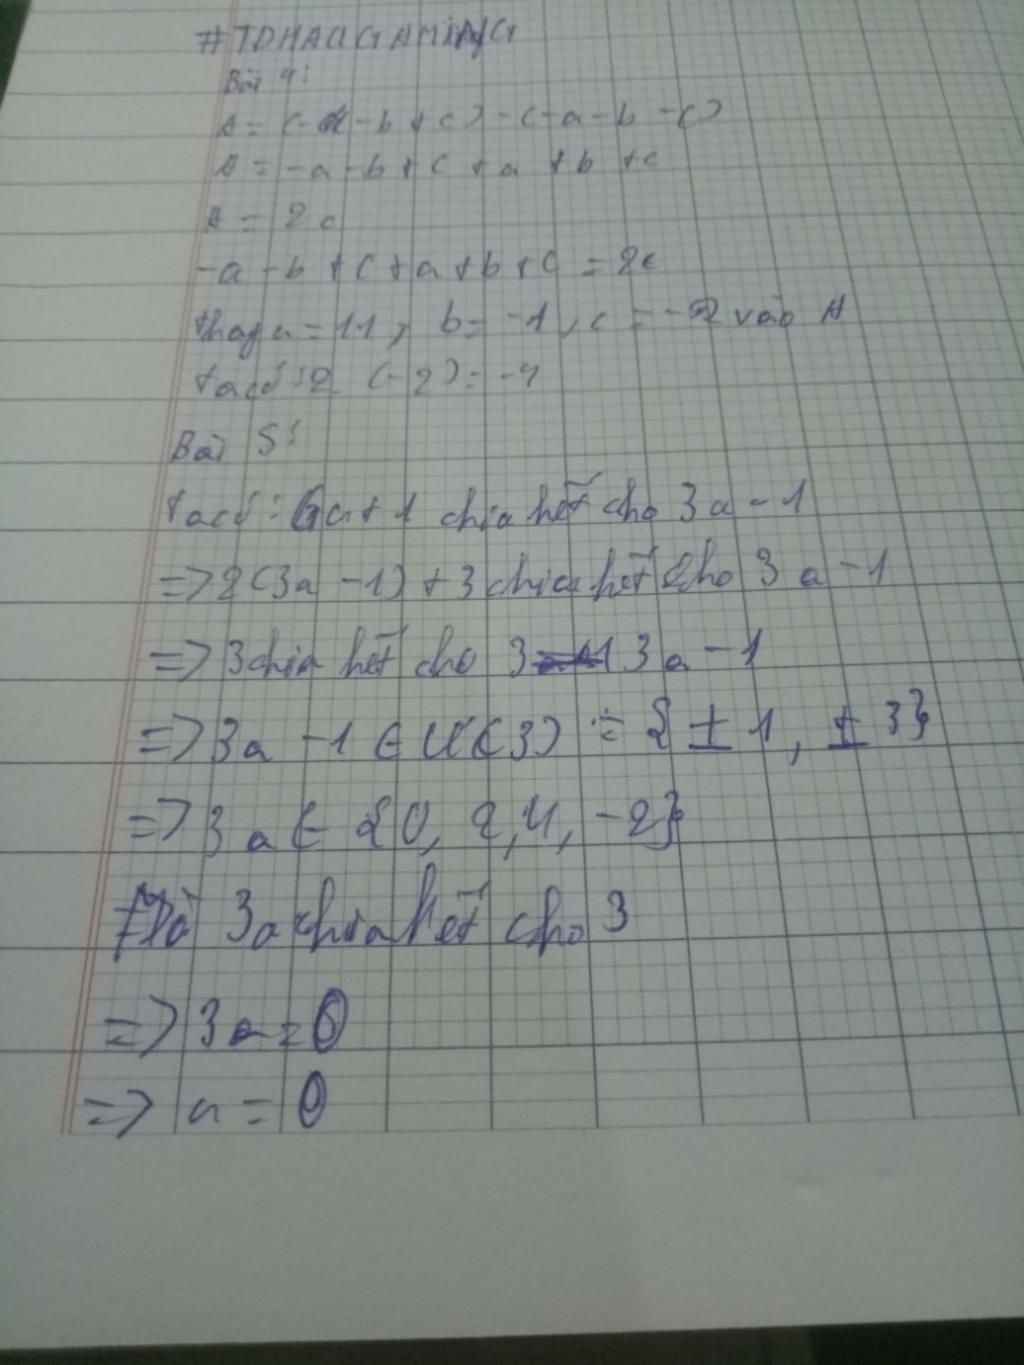 #TDHAUGAMING
Bài 4:
A = (-a - b + c) - (-a - b - c)
A = -a - b + c + a + b + c
A = 2c
-a - b + c + a + b + c = 2c
thay a = 11, b = -1, c = -2 vào A
ta có: 2. (-2) = -4
Bài 5:
ta có: 6a + 1 chia hết cho 3a - 1
=> 2(3a - 1) + 3 chia hết cho 3a - 1
=> 3 chia hết cho 3a - 1
=> 3a - 1 ∈ Ư(3) = {±1, ±3}
=> 3a ∈ {0, 2, 4, -2}
Mà 3a chia hết cho 3
=> 3a = 0
=> a = 0